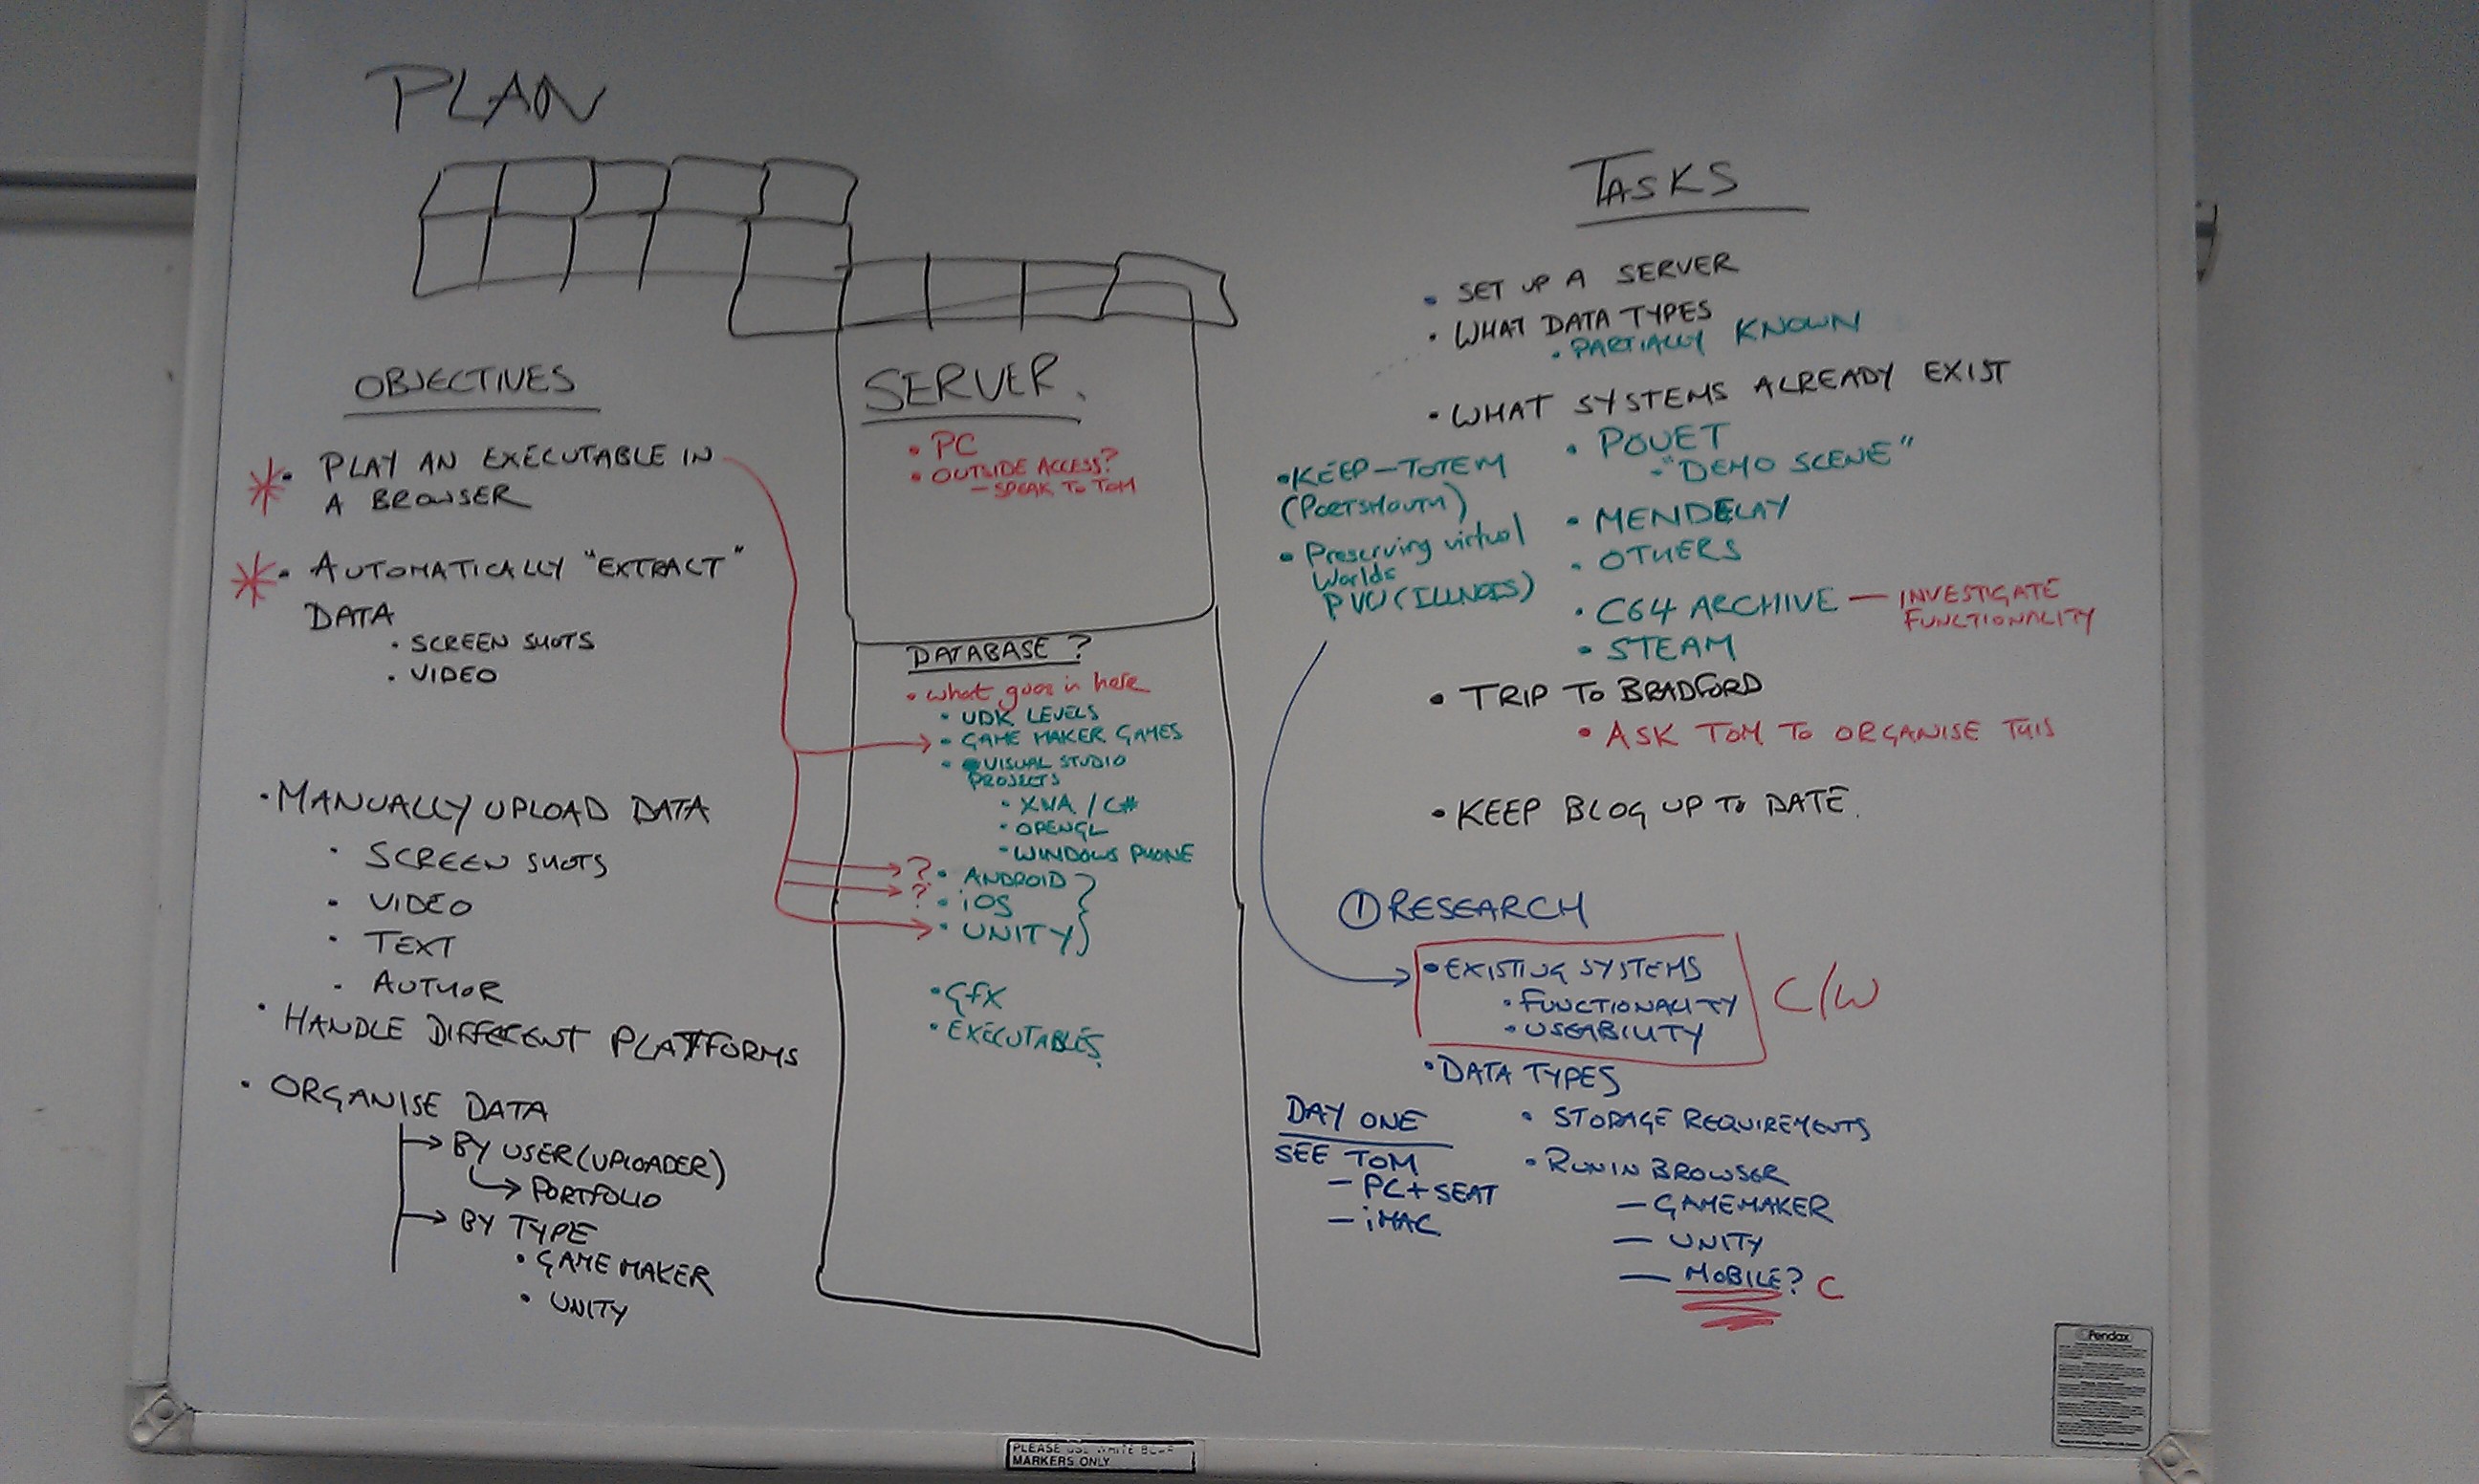 PLAN
OBJECTIVES
• PLAY AN EXECUTABLE IN
A BROWSER
• AUTOMATICALLY "EXTRACT"
DATA
• SCREEN SHOTS
• VIDEO
• MANUALLY UPLOAD DATA
• SCREEN SHOTS
• VIDEO
• TEXT
• AUTHOR
• HANDLE DIFFERENT PLATFORMS
• ORGANISE DATA
BY USER (UPLOADER)
PORTFOLIO
BY TYPE
• GAME MAKER
• UNITY
SERVER.
• PC
• OUTSIDE ACCESS?
- SPEAK TO TOM
DATABASE ?
• what goes in here
• UDK LEVELS
• GAME MAKER GAMES
• VISUAL STUDIO
PROJECTS
• XNA / C#
• OPENGL
• WINDOWS PHONE
? • ANDROID
? • iOS
• UNITY
• GFX
• EXECUTABLES
TASKS
• SET UP A SERVER
• WHAT DATA TYPES
• PARTIALLY KNOWN
• WHAT SYSTEMS ALREADY EXIST
• POUET
- "DEMO SCENE"
• MENDELAY
• OTHERS
• C64 ARCHIVE — INVESTIGATE
FUNCTIONALITY
• STEAM
• KEEP - TOTEM
(PORTSMOUTH)
• Preserving virtual
Worlds
PVW (ILLINOIS)
• TRIP TO BRADFORD
• ASK TOM TO ORGANISE THIS
• KEEP BLOG UP TO DATE.
① RESEARCH
• EXISTING SYSTEMS
• FUNCTIONALITY
• USEABILITY
C/W
• DATA TYPES
• STORAGE REQUIREMENTS
• RUN IN BROWSER
— GAMEMAKER
— UNITY
— MOBILE? C
DAY ONE
SEE TOM
- PC + SEAT
- iMAC
Pendax
PLEASE USE WHITE
MARKERS ONLY